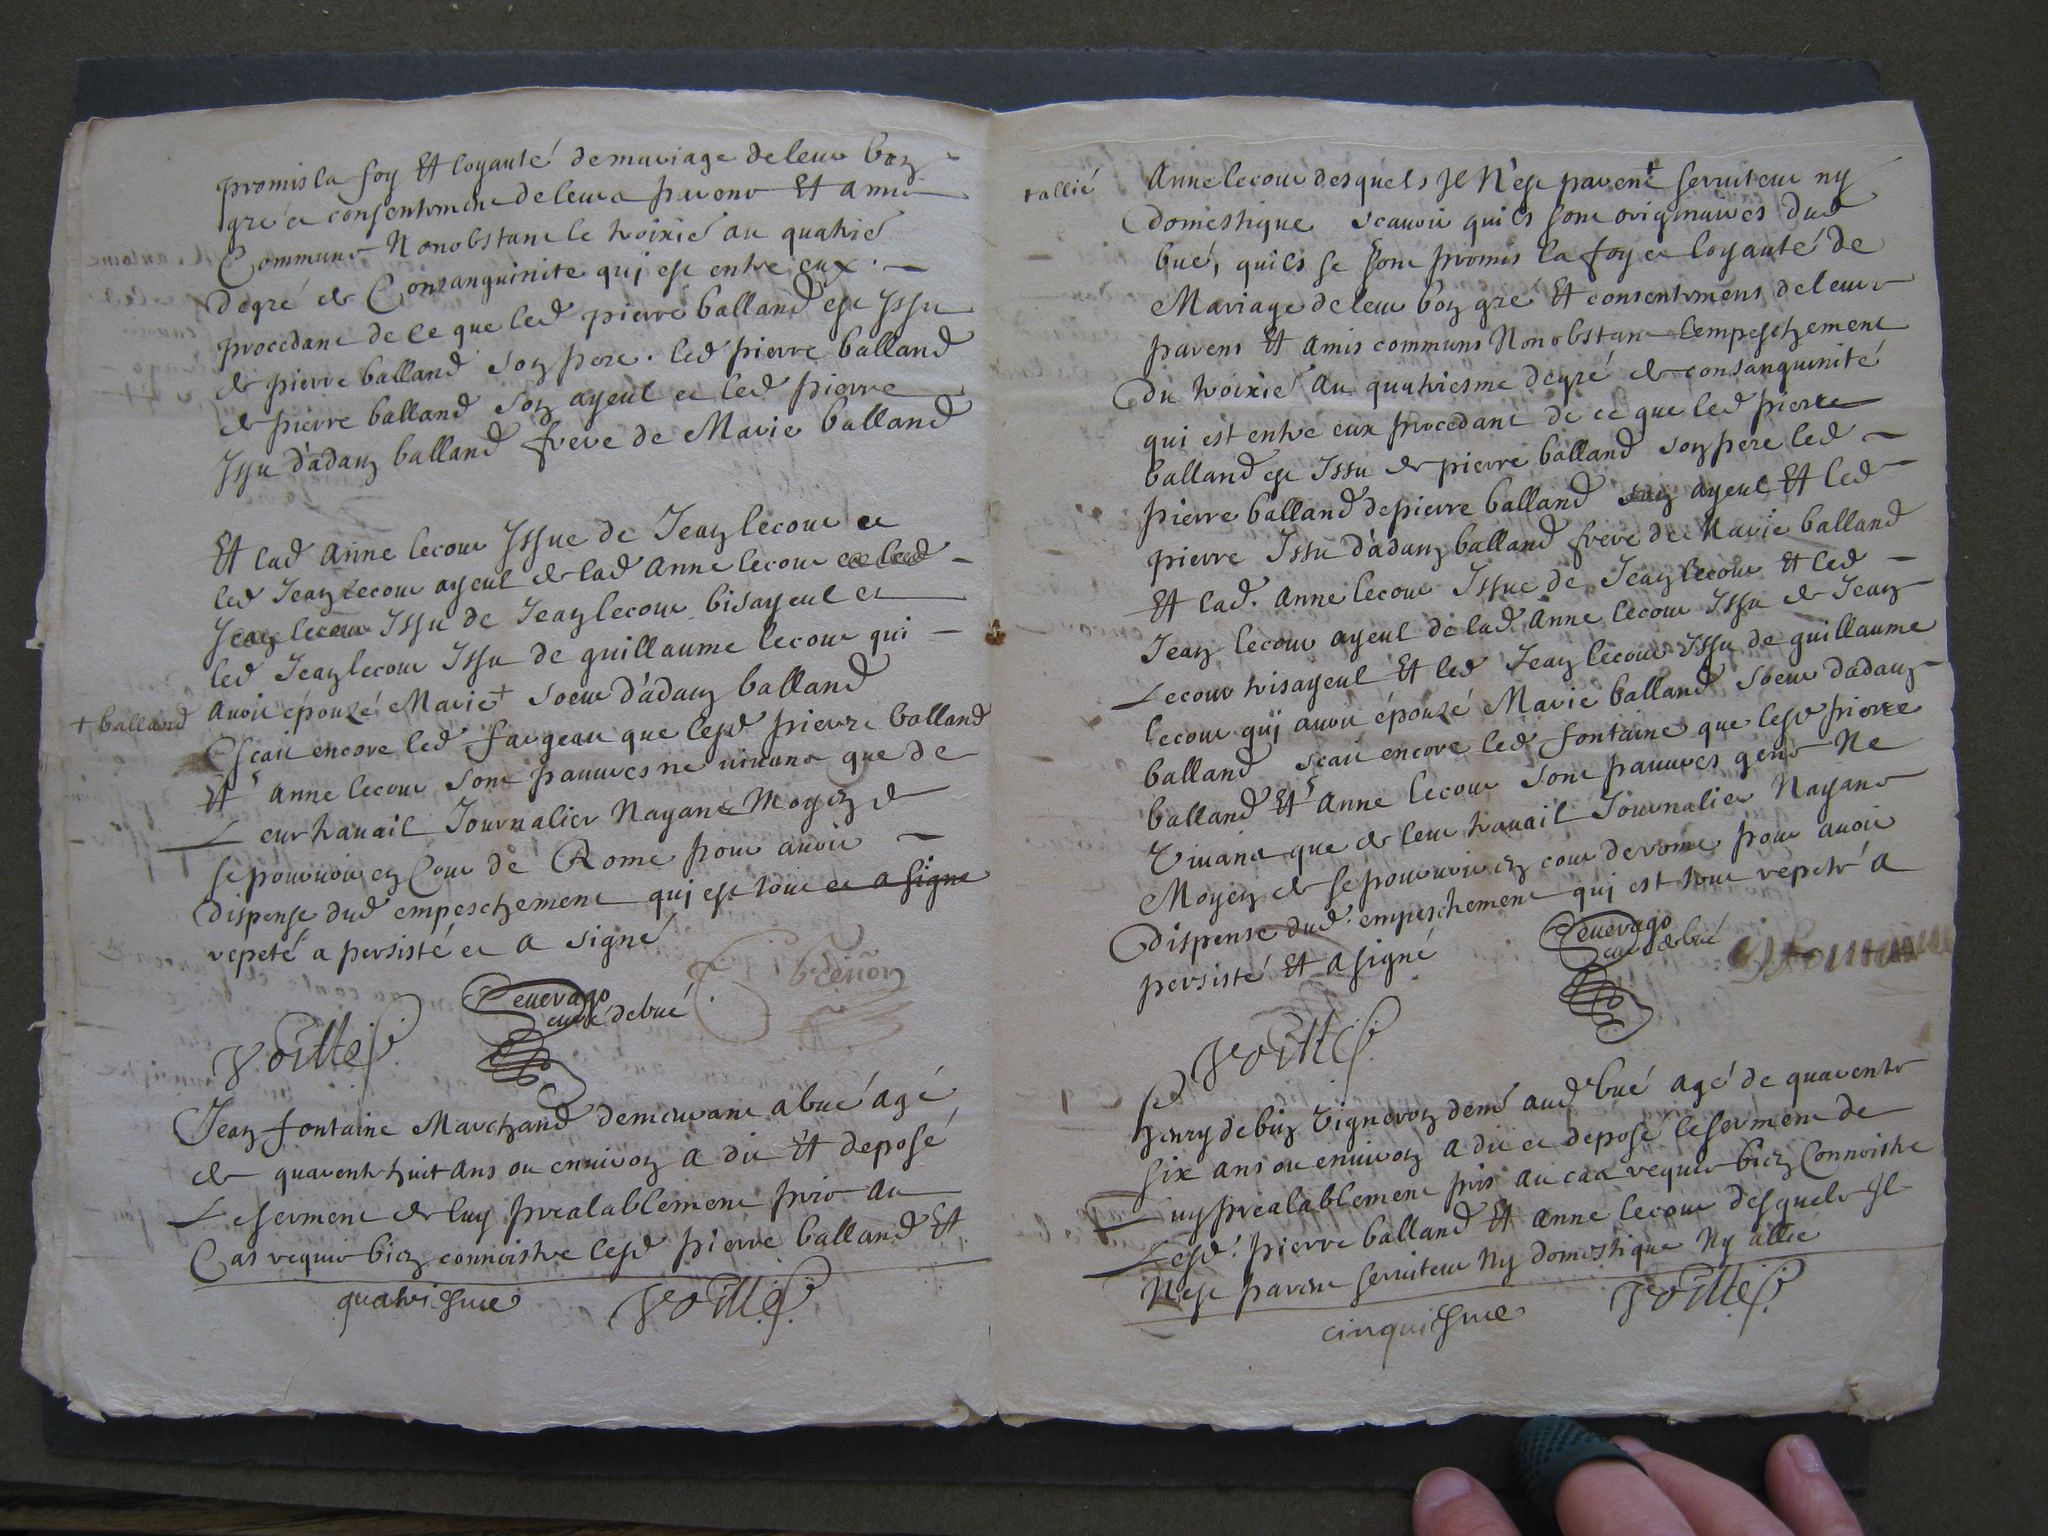 promis la foy Et loyauté de mariage de leur bon
gré et consentement de leurs parens Et amis
Communs Nonobstant le troixie au quatrie
degré de Consanguinite qui est entre eux.
procedant de ce que led pierre balland est Issu
de pierre balland son pere. led pierre balland
de pierre balland son ayeul et led pierre
Issu d'adam balland frere de Marie balland
Et lad anne lecour Issue de Jean lecour et
led Jean lecour ayeul de lad anne lecour et led
Jean lecour Issu de Jean lecour bisayeul et
led Jean lecour Issu de guillaume lecour qui
avoit épouzé Marie + soeur d'adam balland
+ balland
Scait encore led fargeau que lesd pierre balland
Et anne lecour sont pauvres ne vivans que de
Leur travail Journalier Nayans Moyen de
se pourvoir en Cour de Rome pour avoir
dispense dud empeschement qui est tout et a signe
repeté a persisté et a signé
Severago
curé de bué
Voille
Jean fontaine Marchand demeurant a bué âgé
de quarente huit ans ou environ a dit Et deposé
Le serment de luy prealablement pris au
Cas requis bien connoistre lesd pierre balland Et
quatriesme
Voille
+ allié
Anne lecour desquels Il N'est parent + serviteur ny
domestique scavoir quils sont originaires dud
bué, quils se sont promis la foy et loyauté de
Mariage de leur bon gré Et consentemens de leurs
parens Et amis communs Nonobstant lempeschement
Du troixie au quatriesme degré de consanguinité
qui est entre eux procedant de ce que led pierre
balland est Issu de pierre balland son pere led
pierre balland de pierre balland son ayeul Et led
pierre Issu d'adam balland frere de Marie balland
Et lad. anne lecour Issue de Jean lecour Et led
Jean lecour ayeul de lad anne lecour Issu de Jean
Lecour bisayeul Et led Jean lecour Issu de guillaume
lecour qui avoit épouzé Marie balland soeur dadam
balland scait encore led fontaine que lesd pierre
balland Et anne lecour sont pauvres gens Ne
Vivans que de leur travail Journalier Nayans
Moyen de se pourvoir en cour de rome pour avoir
dispense dud. empeschement qui est tout repeté a
persisté Et a signé
Severago
curé de bué
J fontaine
Voille
henry debuz Vigneron deme aud bué agé de quarente
six ans ou environ a dit et deposé le serment de
Luy prealablement pris au cas requis bien Connoistre
Lesd. pierre balland Et anne lecour desquels Il
N'est parent serviteur Ny domestique Ny allié
cinquiesme
Voille